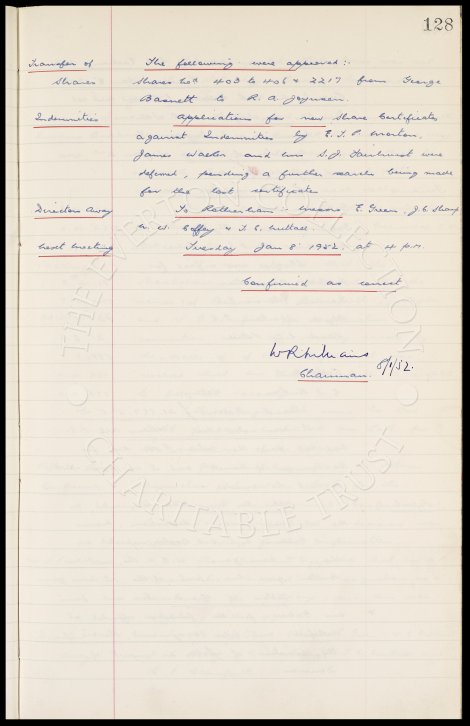 128
Transfer of The following were approved:-
Shares Shares Nos 403 to 406 & 2217 from George
Basnett to R. A. Joynson.
Indemnities Applications for new Share Certificates
against Indemnities by E. T. P. Morton,
James Walker and Mrs S. J. Fairhurst were
deferred, pending a further search being made
for the lost certificate
Directors Away To Rotherham:- Messrs E. Green, J. C. Sharp
W. Coffey & T. C. Nuttall.
Next Meeting Tuesday Jan 8 1952 at 4 p.m.
Confirmed as correct,
8/1/52.
Chairman.
THE EVERTON COLLECTION
CHARITABLE TRUST